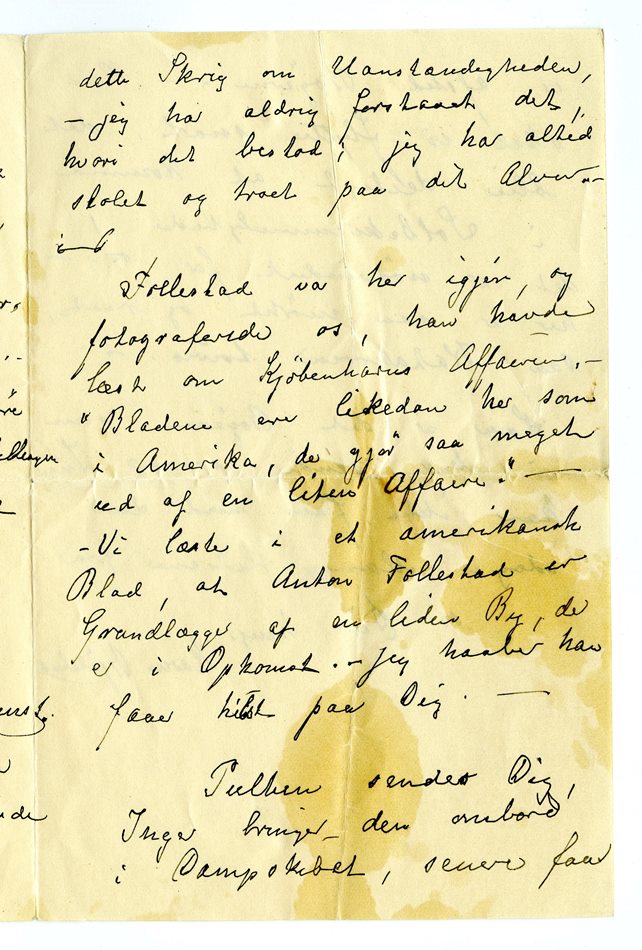 dette Skrig om Uanstændigheden,
– jeg har aldrig forstaaet det,
hvori det bestod; jeg har altid
stolet og troet paa dit Alvor. –
Follestad var her igjen, og
fotograferede os, han havde
læst om Kjöbenhavns Affaeren. –
"Bladene ere likedan her som
i Amerika, de gjör saa meget
ud af en liten Affaere." —
– Vi læste i et amerikansk
Blad, at Anton Follestad er
Grundlægger af en liden By, der
er i Opkomst. – Jeg haaber han
faar hilst paa Dig. —
sendes Dig,
Inger bringer den ombord
i Dampskibet, senere faar